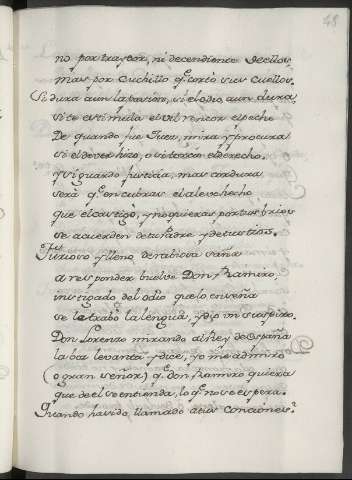 48
no por traydor, ni decendiente dellos,
mas por cuchillo q̃ cortò sus cuellos.
Si dura aun la passion, si el odio aun dura,
si te estimula el vil rencor el pecho
De quando fue Juez, mira, y procura
si el dever hizo, o si torcio el derecho.
y si guardò justicia, mas cordura
serà q̃ encubras el aleve hecho
que el castigò, y no quieras por tus brios
se acuerden de tu Padre, y de tus tios.
Furioso y lleno de rabiosa saña
a responder buelve Don Ramiro,
instigado del odio que lo enseña
se le trabò la lengua, y diò un sospiro.
Don Lorenzo mirando al Rey de España
la boz levanta, y dice, yo me admiro
(o gran señor) q̃ don Ramiro quiera
que de el se entienda, lo q̃ no se espera.
Quando ha sido llamado a tus conciones?